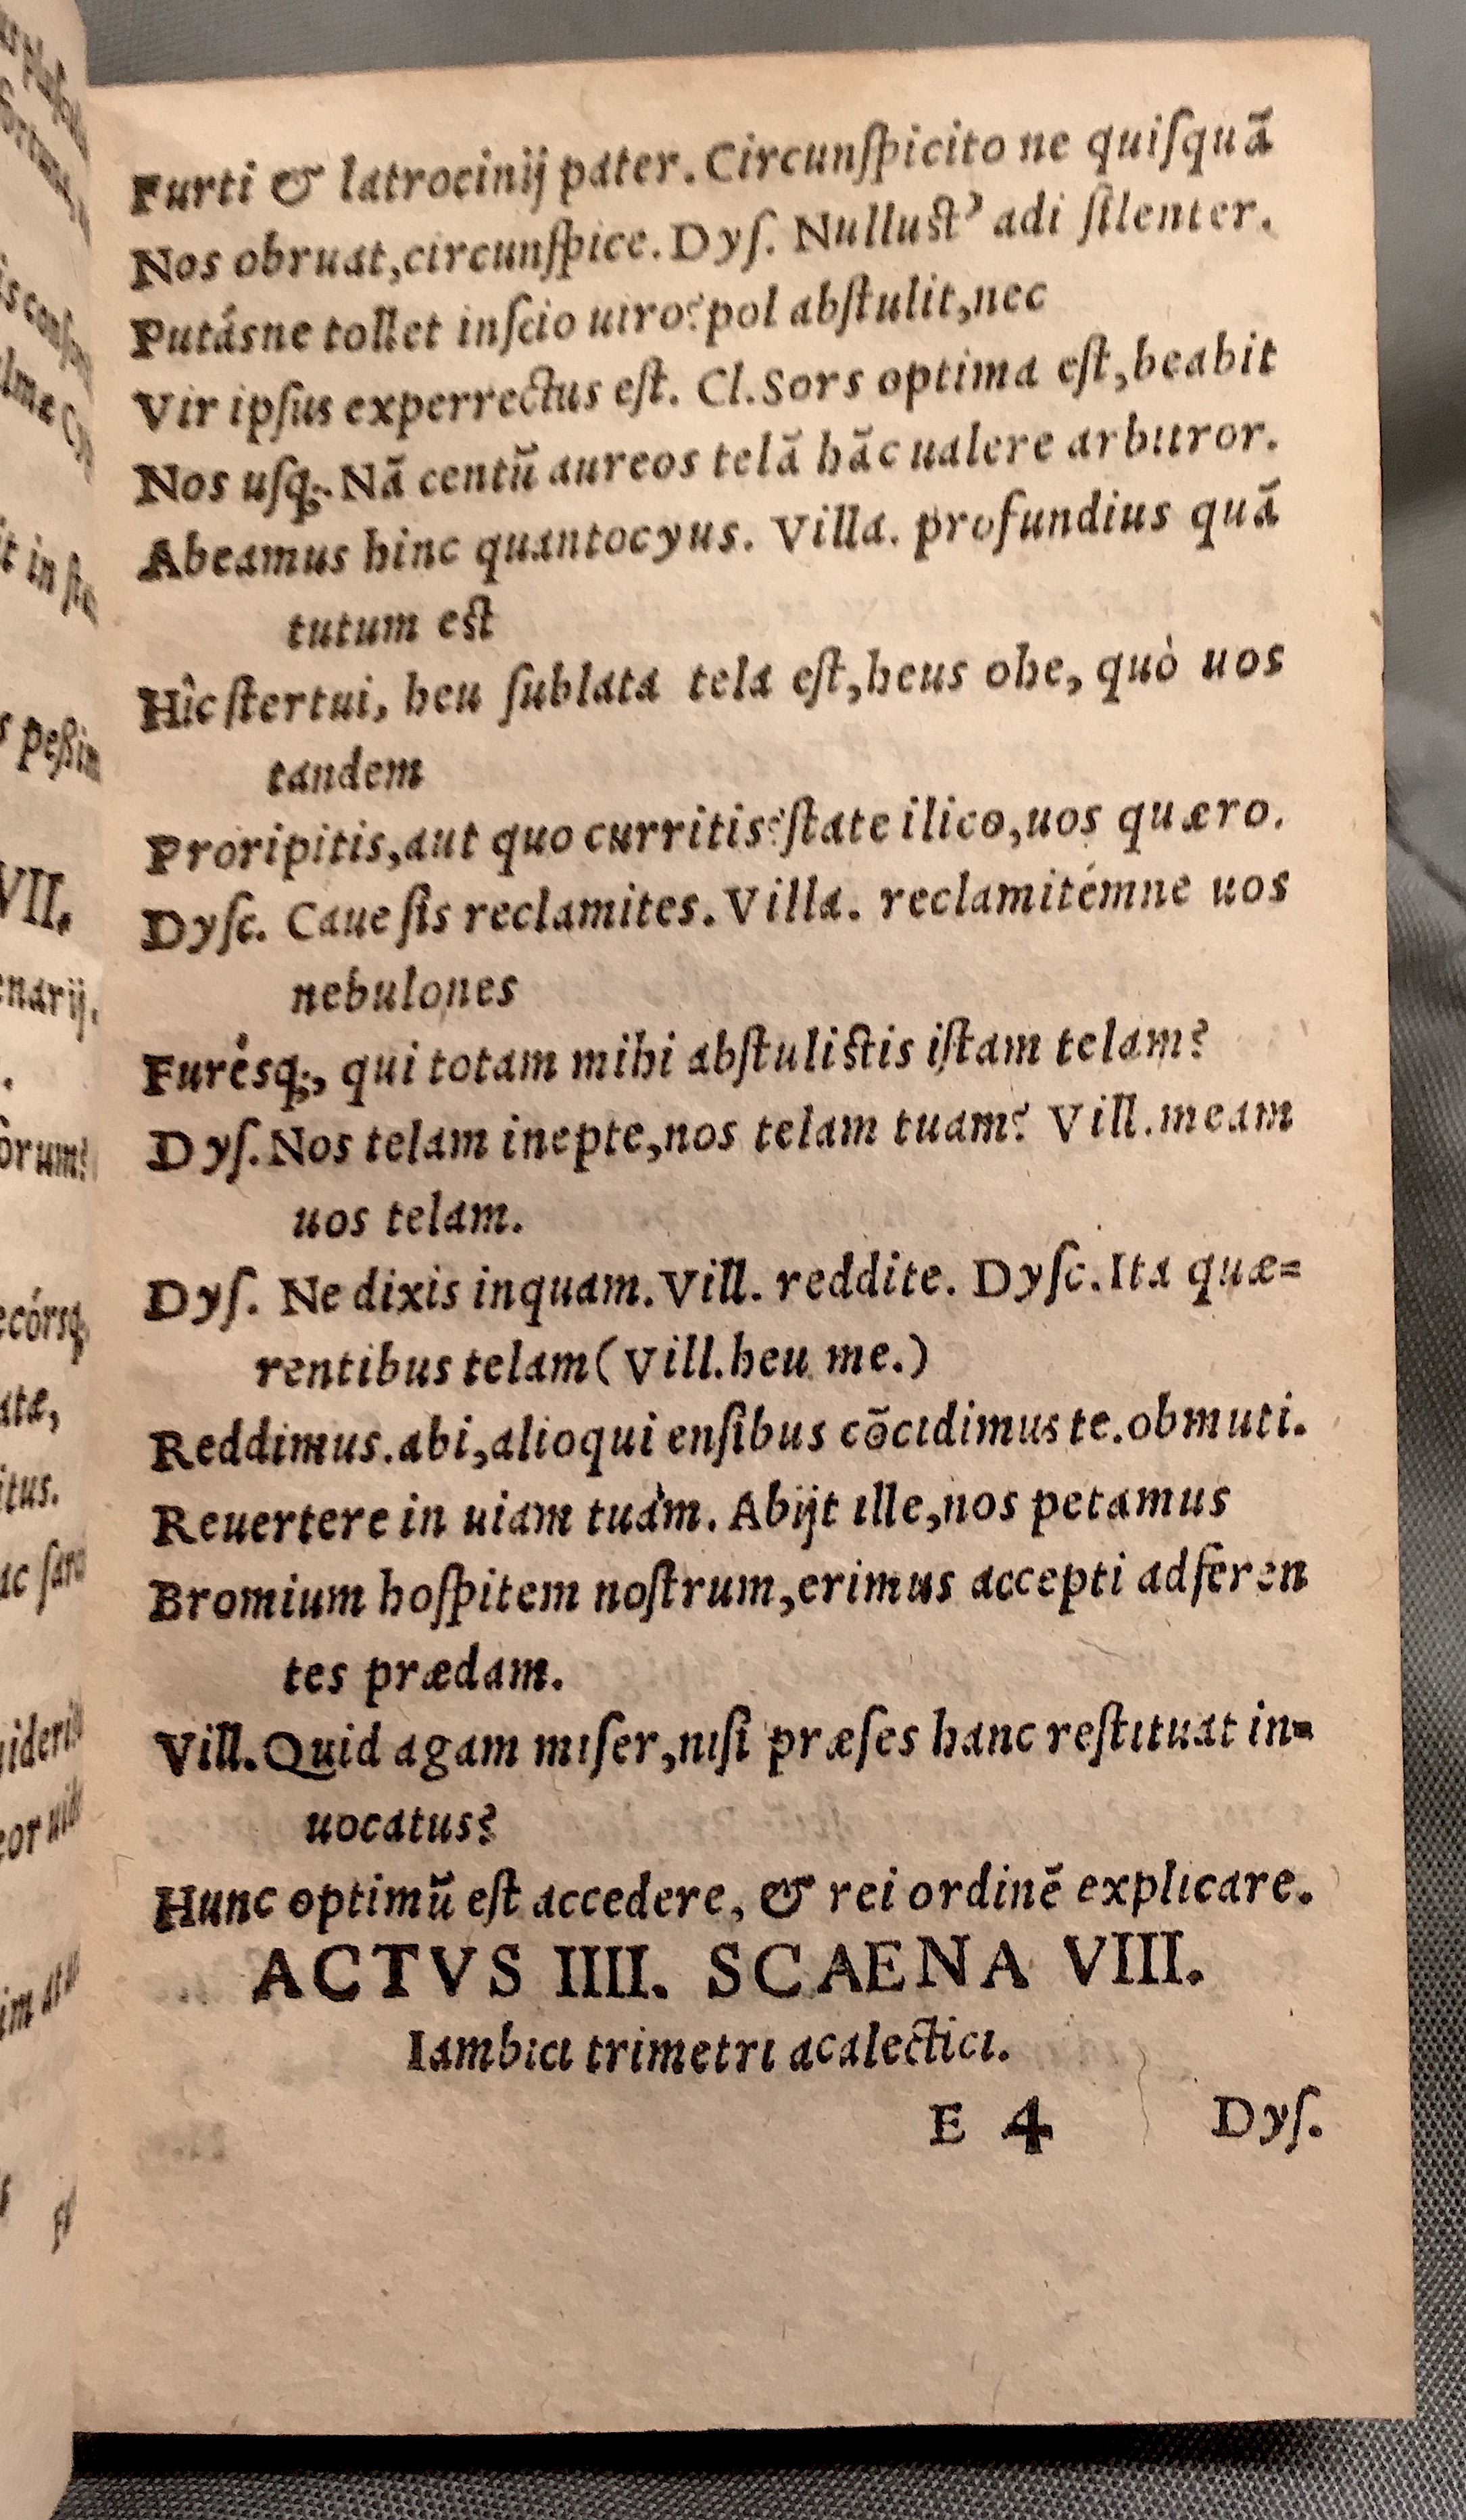 Furti & latrocinij pater. Circunſpicito ne quiſquã
Nos obruat, circunſpice. Dyſ. Nulluſt’ adi ſilenter.
Putásne tollet inſcio uiro? pol abſtulit, nec
Vir ipſus experrectus eſt. Cl. Sors optima eſt, beabit
Nos uſq;. Nã centũ aureos telã hãc ualere arbitror.
Abeamus hinc quantocyus. Villa. profundius quã
tutum est
Hîc ſtertui, heu ſublata tela eſt, heus ohe, quò uos
tandem
Proripitis, aut quo curritis? ſtate ilico, uos quæro.
Dyſc. Caue ſis reclamites. Villa. reclamitémne uos
nebulones
Furésq;, qui totam mihi abſtulistis iſtam telam?
Dyſ. Nos telam inepte, nos telam tuam? Vill. meam
uos telam.
Dyſ. Ne dixis inquam. Vill. reddite. Dyſc. Ita quæ=
rentibus telam (Vill. heu me.)
Reddimus. abi, alioqui enſibus cõcidimus te. obmuti.
Reuertere in uiam tuàm. Abijt ille, nos petamus
Bromium hoſpitem noſtrum, erimus accepti adferen
tes prædam.
Vill. Quid agam miſer, niſi præſes hanc reſtituat in=
uocatus?
Hunc optimũ eſt accedere, & rei ordinẽ explicare.
ACTVS IIII. SCAENA VIII.
Iambici trimetri acalectici.
E 4 Dyſ.